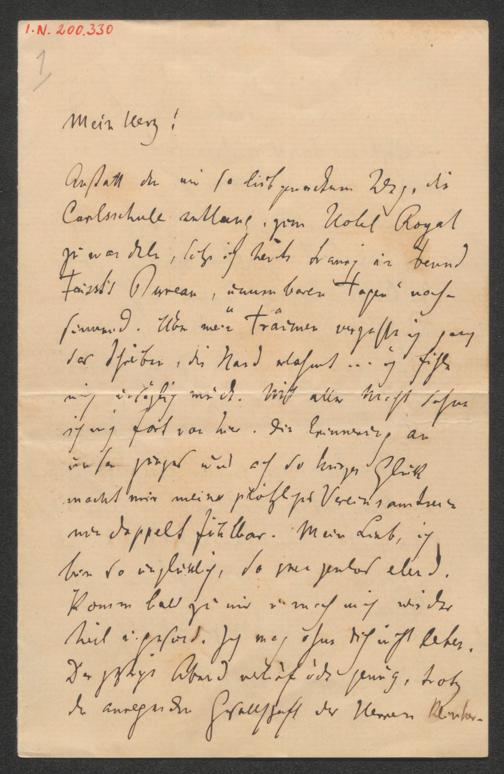 I.N. 200.330
1
Mein Herz!
Anstatt den mir so lieb gewordenen Weg, die
Carlsschule entlang, zum Hotel Royal
zu wandeln, sitze ich heute traurig in
Faissts Bureau, "unnennbaren Tagen" nach-
sinnend. Über mein Träumen vergesse ich ganz
das Schreiben, die Hand erlahmt ... ich fühle
mich müde. Mit aller Macht sehne
ich mich fort von hier. Die Erinnerung an
unser junges und ach so kurzes Glück
macht mir meine plötzliche Vereinsamung
nur doppelt fühlbar. Mein Lieb, ich
bin so unglücklich, so grenzenlos elend.
Komm bald zu mir u. mach mich wieder
heil u. gesund. Ich mag ohne dich nicht leben.
Der gestrige Abend verlief öde genug, trotz
der anregenden Gesellschaft der Herren